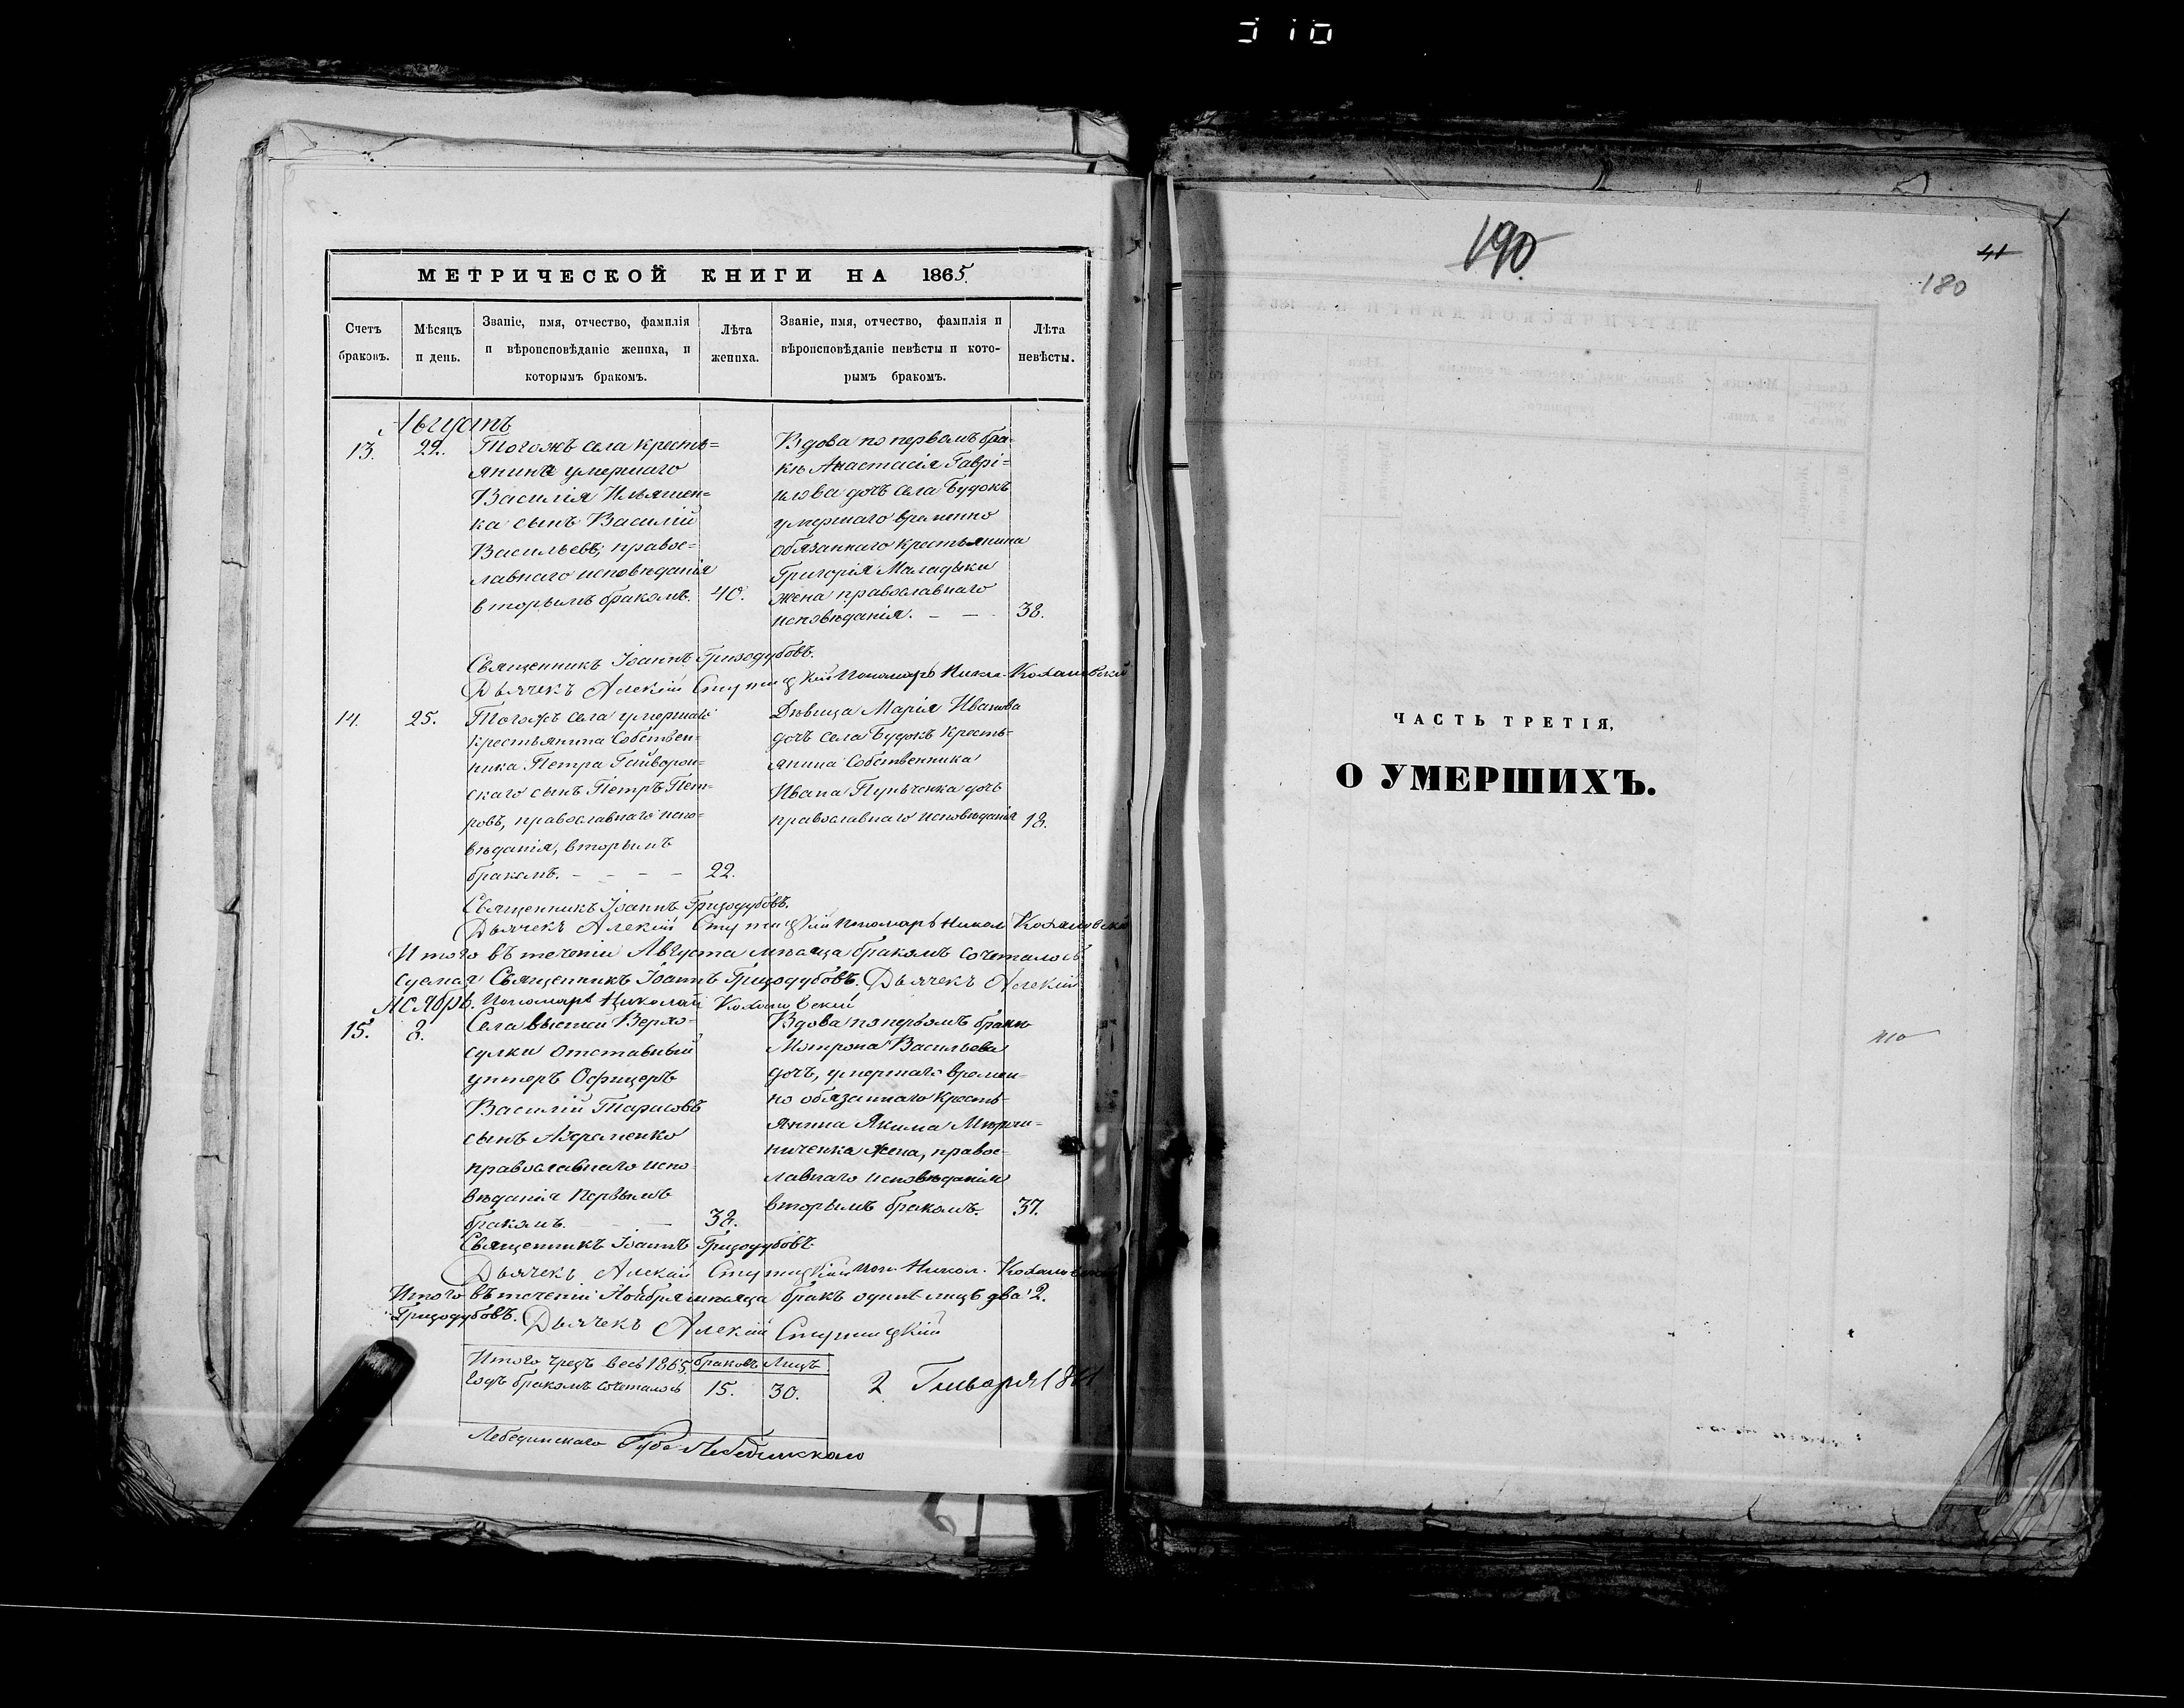 МЕТРИЧЕСКОЙ КНИГИ НА 1865.
Счетъ браковъ.
Мѣсяцъ и день.
Званіе, имя, отчество, фамилія
и вѣроисповѣданіе жениха, и
которымъ бракомъ.
Лѣта жениха.
Званіе, имя, отчество, фамилія и
вѣроисповѣданіе невѣсты и кото-
рымъ бракомъ.
Лѣта невѣсты.
Августъ
13. 22.
Тогожъ села кресть=
янина умершаго
Василія Ильяшен=
ка сынъ Василій
Васильевъ, правос=
лавнаго исповѣданія
вторымъ бракомъ. 40.
Вдова по первомъ бра-
кѣ Анастасія Гаврі=
илова дочь села Будокъ
умершаго временно
обязаннаго крестьянина
Григорія Маладыки
жена православнаго
исповѣданія. — — 38.
Священникъ Іоаннъ Гризодубовъ.
Дьячекъ Алексій Пономарь Никол. Кохановскій
14. 25.
Тогожъ села умершаго
крестьянина Собствен=
ника Петра Гайворон=
скаго сынъ Петръ Пет=
ровъ, православнаго испо=
вѣданія, вторымъ
бракомъ. — — — — 22.
Дѣвица Марія Иванова
дочь села Будокъ кресть-
янина Собственника
Ивана дочь
православнаго исповѣданія 18.
Священникъ Іоаннъ Гризодубовъ.
Дьячекъ Алексій Пономарь Никол Кохановскій
Итого въ теченіи Августа мѣсяца бракомъ сочеталось
Священникъ Іоаннъ Гризодубовъ. Дьячекъ Алексій
Пономарь Николай Кохановскій
15. 8.
Села Верхо-
сулки Отставный
унтеръ Офицеръ
Василій Тарасовъ
сынъ
православнаго испо-
вѣданія первымъ
бракомъ. — — 38.
Вдова по первомъ бракѣ
Мотрона Васильева
дочь, умершаго времен=
но обязаннаго кресть-
янина Якима
жена, правос=
лавнаго исповѣданія
вторымъ бракомъ. 37.
Священникъ Іоаннъ Гризодубовъ
Дьячекъ Алексій Пон. Никол. Кохановскій
Итого въ теченіи Ноября мѣсяца бракъ одинъ лицъ два 2.
Гризодубовъ. Дьячекъ Алексій
Итого чрезъ весь 1865 браковъ Лицъ
годъ бракомъ сочеталось 15. 30.
2 Генваря
Лебединскаго
190
41
180
ЧАСТЬ ТРЕТІЯ,
О УМЕРШИХЪ.